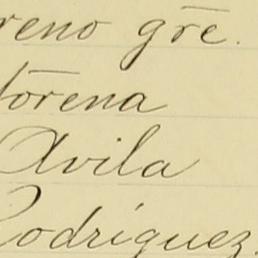 reno gre.
torena
Avila
Rodríguez.